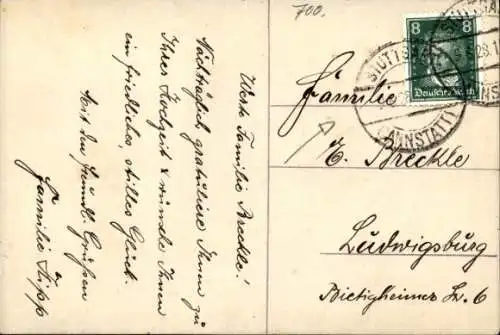 Werte Familie Breckle!
Nachträglich gratuliere Ihnen zu
Ihrer Hochzeit & wünsche Ihnen
ein friedliches, stilles Glück.
Mit den freundl. Grüßen
Familie
700.
8 8
Deutsches Reich
STUTTGART
CANNSTATT
Familie
E. Breckle
Ludwigsburg
Bietigheimer Str. 6